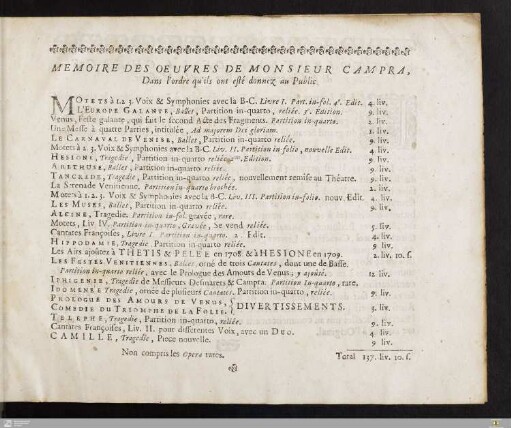 MEMOIRE DES OEUVRES DE MONSIEUR CAMPRA,
Dans l'ordre qu'ils ont esté donnez au Public.
MOTETS à 1. 2. 3. Voix & Symphonies avec la B-C. Livre I. Part. in-fol. 4e. Edit. 4. liv.
L'EUROPE GALANTE, Ballet, Partition in-quarto, reliée. 3e. Edition. 9. liv.
Venus, Feste galante, qui fait le second Acte des Fragments. Partition in-quarto. 2. liv.
Une Messe à quatre Parties, intitulée, Ad majorem Dei gloriam. 1. liv.
LE CARNAVAL DE VENISE, Ballet, Partition in-quarto reliée. 9. liv.
Motets à 1. 2. 3. Voix & Symphonies avec la B-C. Liv. II. Partition in folio, nouvelle Edit. 4. liv.
HESIONE, Tragedie, Partition in-quarto reliée, Edition. 9. liv.
ARETHUSE, Ballet, Partition in-quarto reliée. 9. liv.
TANCREDE, Tragedie, Partition in-quarto reliée, nouvellement remise au Théatre. 9. liv.
La Serenade Venitienne. Partition in-quarto brochée. 2. liv.
Motets à 1. 2. 3. Voix & Symphonies avec la B-C. Liv. III. Partition in-folio. nouv. Edit. 4. liv.
LES MUSES, Ballet, Partition in-quarto reliée. 9. liv.
ALCINE, Tragedie. Partition in-fol. gravée, rare.
Motets, Liv. IV. Partition in-quarto, Gravée, Se vend reliée. 5. liv.
Cantates Françoises, Livre I. Partition in-quarto. 2 Edit. 4. liv.
HIPPODAMIE, Tragedie Partition in-quarto reliée 9. liv.
Les Airs ajoûtez à THETIS & PELÉE en 1708. & à HESIONE en 1709. 2. liv. 10. s.
LES FESTES VENITIENNES, Ballet, orné de trois Cantates, dont une de Basse.
Partition in-quarto reliée, avec le Prologue des Amours de Venus; y ajoûté. 12. liv.
IPHIGENIE, Tragedie de Messieurs Desmarets & Campra. Partition In-quarto, rare.
IDOMENÉE Tragedie, ornée de plusieurs Cantates. Partition in-quarto, reliée. 9. liv.
PROLOGUE DES AMOURS DE VENUS,
DIVERTISSEMENTS. 3. liv.
COMEDIE DU TRIOMPHE DE LA FOLIE,
TELEPHE, Tragedie, Partition in-quarto, reliée. 9. liv.
Cantates Françoises, Liv. II. pour differentes Voix, avec un DUO. 4. liv.
CAMILLE, Tragedie, Piece nouvelle. 9. liv.
Non compris les Opera rares. Total 137. liv. 10. s.